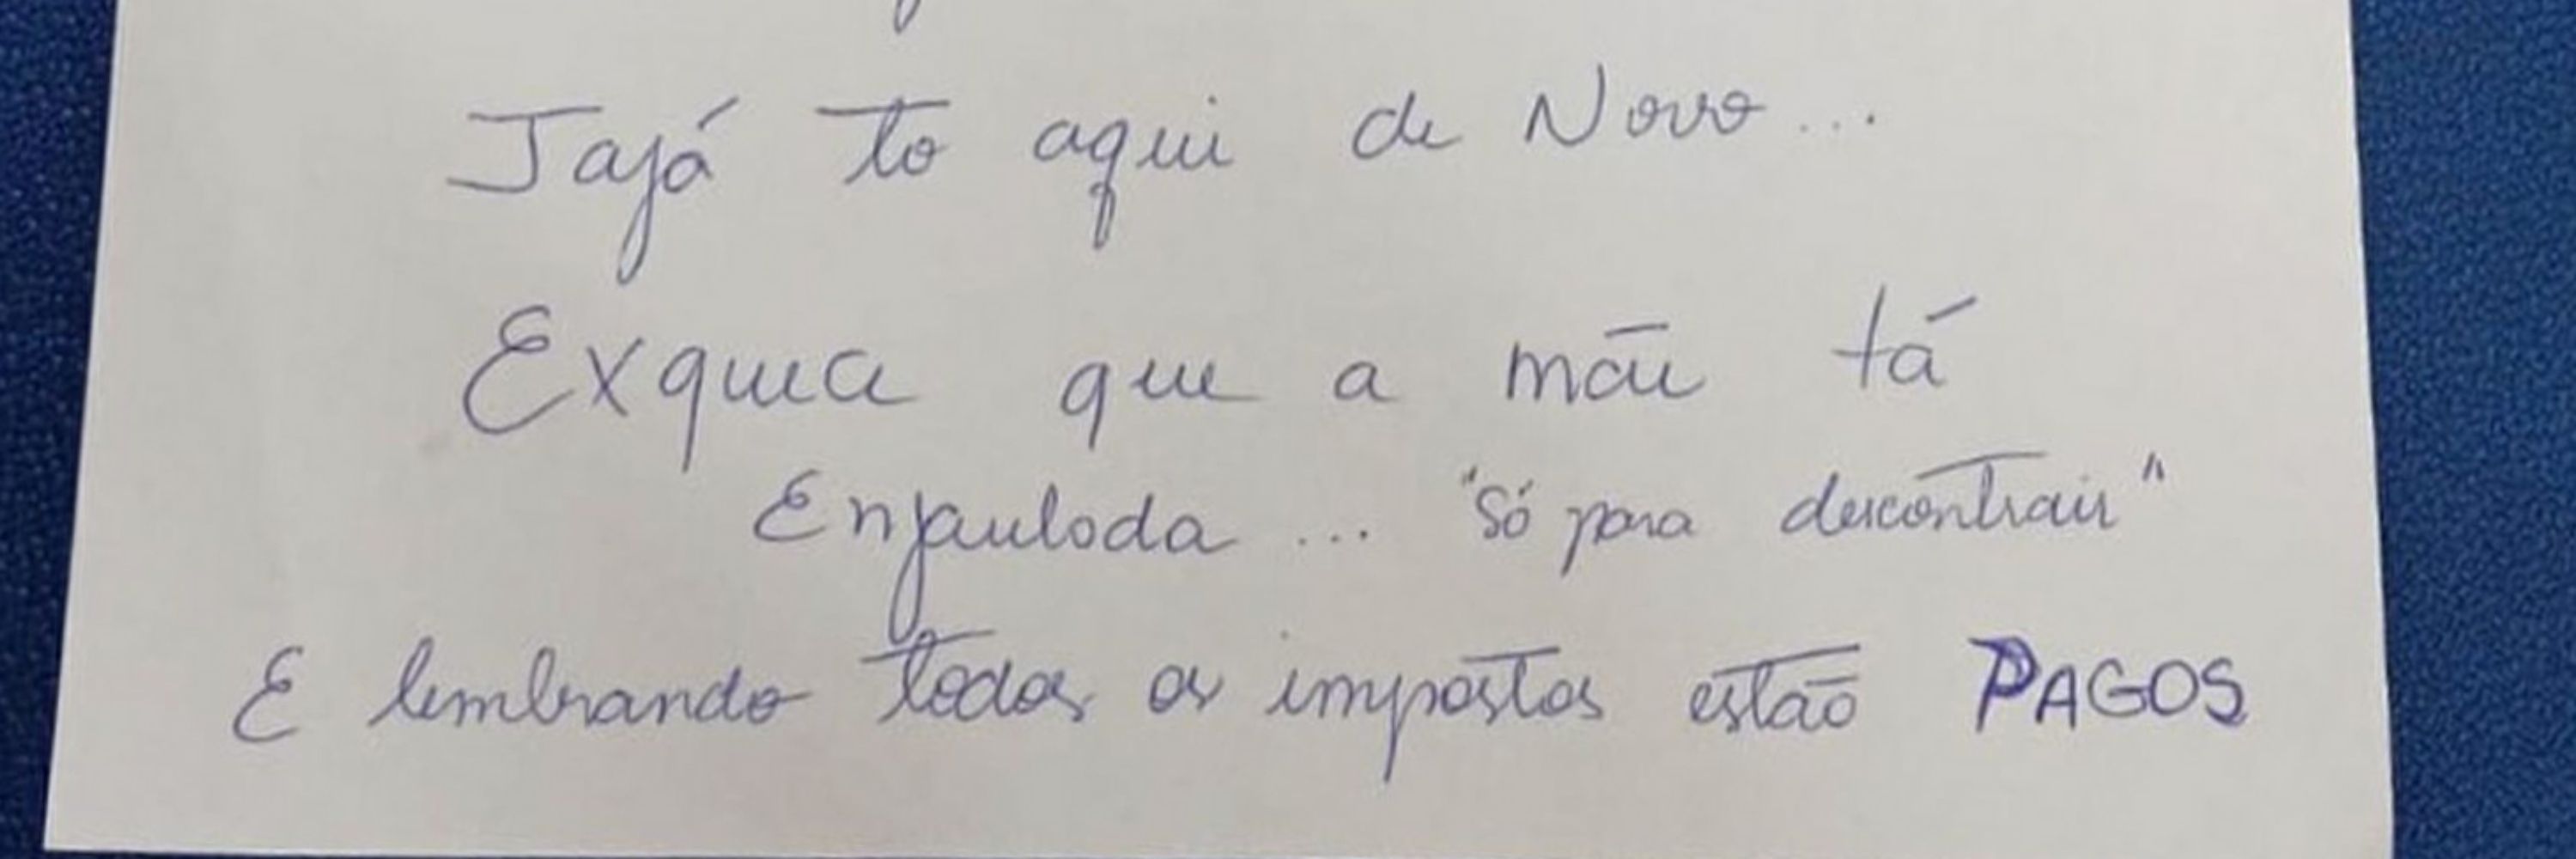 Jajá to aqui de Novo...
Exquea que a mãe tá
Enjaulada ... "Só para descontrair"
E lembrando todos os impostos estão PAGOS